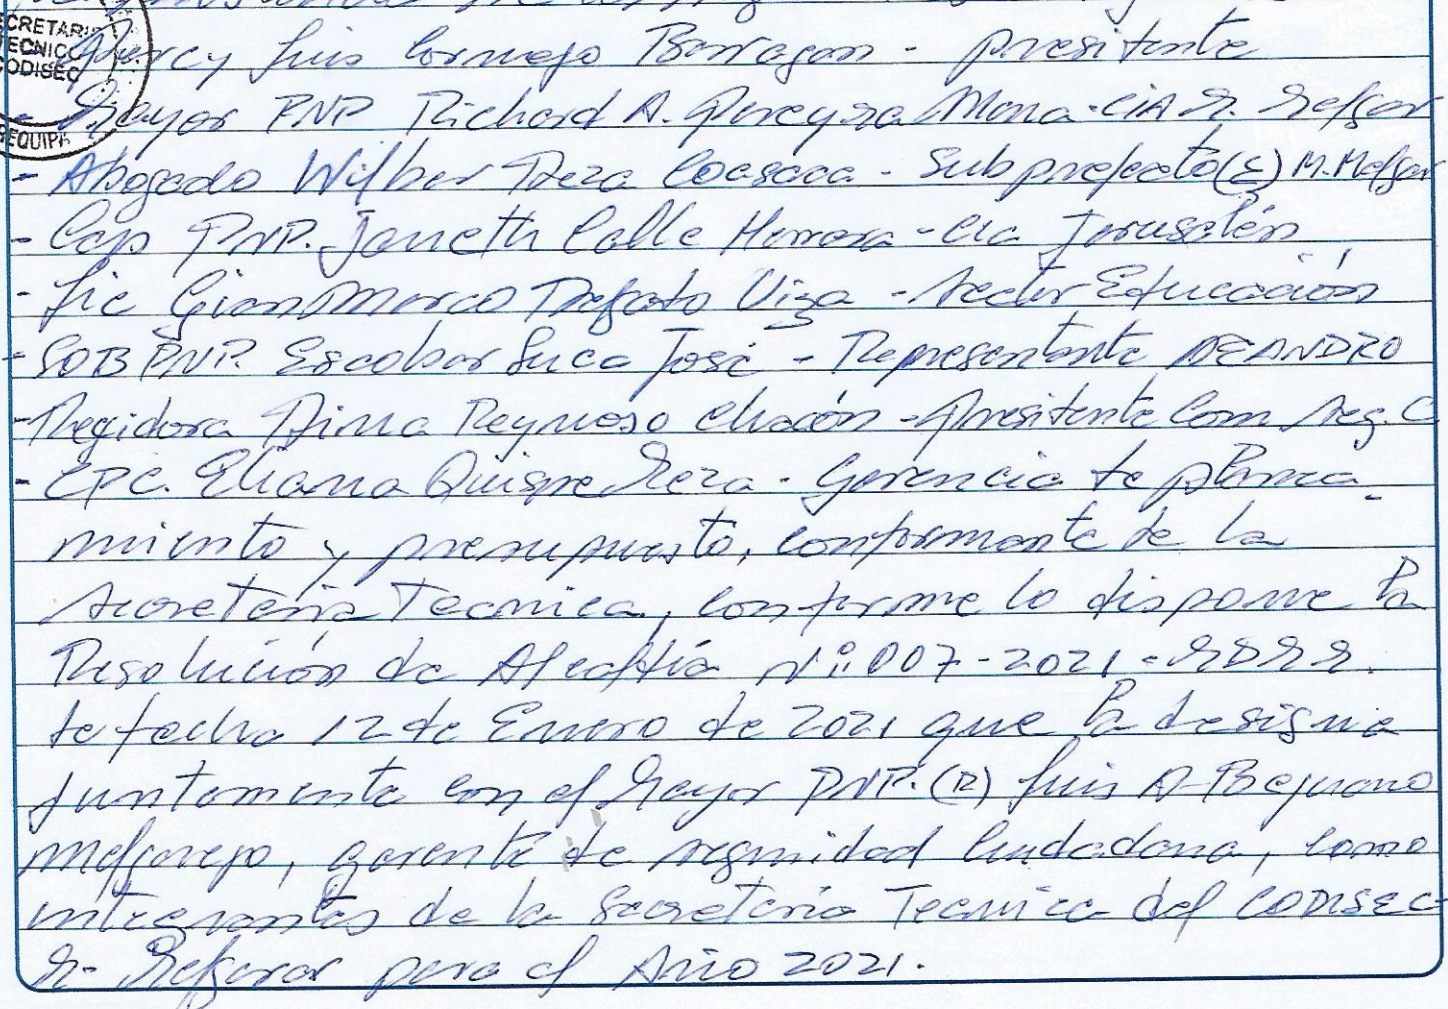 SECRETARI
TECNICO
CODISEC
REQUIPA
Percy Luis Cornejo Barragan - presidente
- Mayor PNP Richard A. Pereyra Mona - CIA M. Melgar
- Abogado Wilber Meza Coasaca - Subprefecto (E) M. Melgar
- Cap PNP. Janeth Calle Herrera - Cia Jerusalén,
- Lic GianMarco Delgado Viza - Sector Educación
- SOB PNP. Escobar Suca José - Representante DEANDRO
- Regidora Dina Reynoso Chacón - Presidente Com Seg. C
- CPC. Eliana Quispe Meza - Gerencia de planea
miento y presupuesto, conformante de la
Secretaria Tecnica, conforme lo dispone la
Resolución de Alcaldía N: 007-2021-MDMM.
de fecha 12 de Enero de 2021 que la designa
juntamente con el Mayor PNP. (R) Luis A. Bejarano
Melgarejo, gerente de seguridad Ciudadana, como
integrantes de la Secretaria Tecnica del CODISEC-
M- Melgar para el Año 2021.